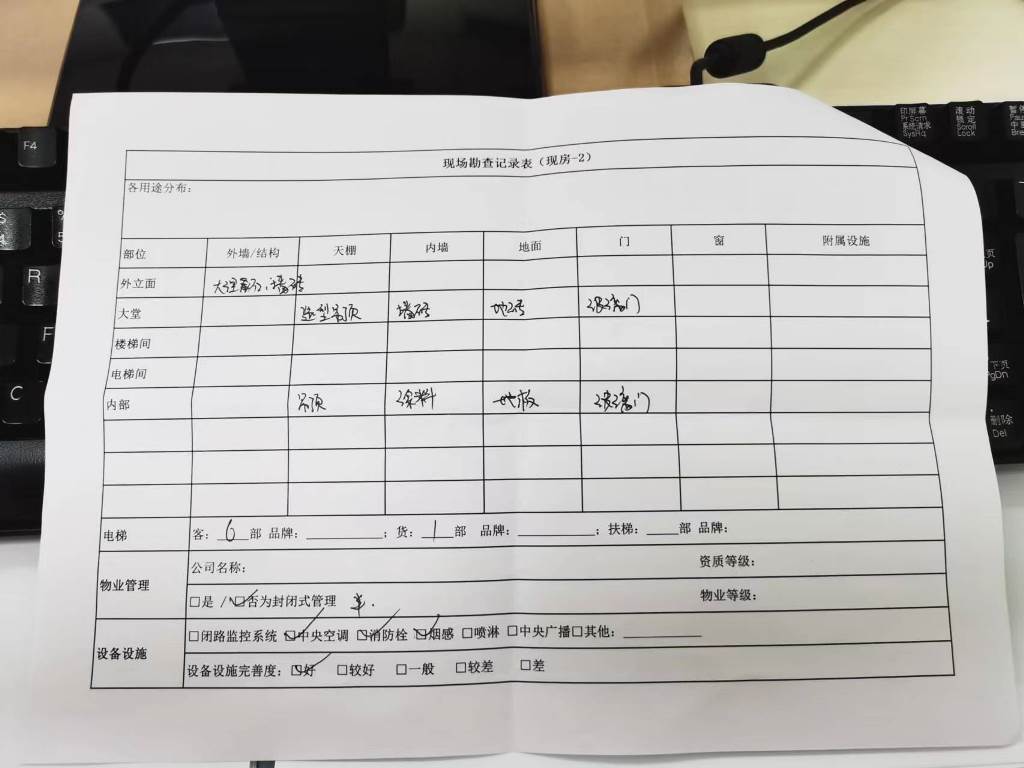 F4
印屏幕
PrScrn
系统请求
SysRq
滚动
锁定
Scroll
Lock
$
4
%
5
R
F
C
现场勘查记录表（现房-2）
各用途分布：
部位 外墙/结构 天棚 内墙 地面 门 窗 附属设施
外立面 大理石、墙砖
大堂 造型吊顶 墙砖 地砖 玻璃门
楼梯间
电梯间
内部 吊顶 涂料 地板 玻璃门
电梯 客：6部 品牌：________；货：1部 品牌：________；扶梯：____部 品牌：
物业管理 公司名称： 资质等级：
□是 /☑否为封闭式管理 半. 物业等级：
设备设施 □闭路监控系统 ☑中央空调 ☑消防栓 ☑烟感 □喷淋 □中央广播□其他：________
设备设施完善度：☑好 □较好 □一般 □较差 □差
删除
Del